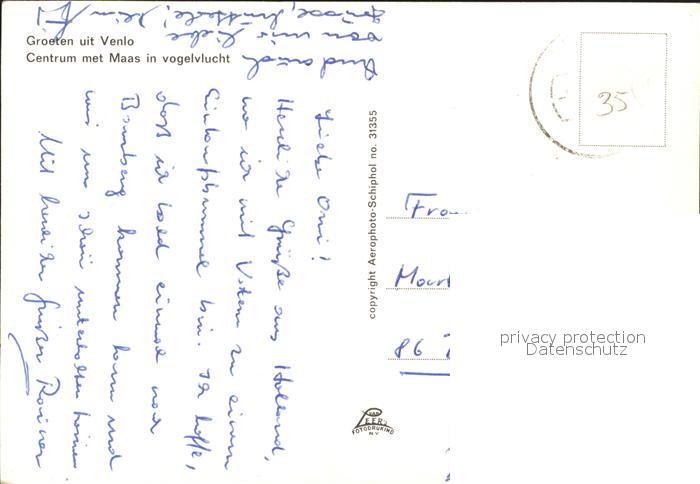 Groeten uit Venlo
Centrum met Maas in vogelvlucht
Liebe Omi!
Herzliche Grüße aus Holland,
wo ich mit Vatern zu einem
Einkaufsbummel bin. Ich hoffe,
daß ich bald einmal nach
Bamberg kommen kann und
wir uns schön unterhalten können.
Mit herzlichen Grüßen Rainer
Und auch
von mir liebe
Grüsse,
copyright Aerophoto-Schiphol no. 31355
86
35
VAN LEER'S
FOTODRUKIND
N.V.
privacy protection
Datenschutz